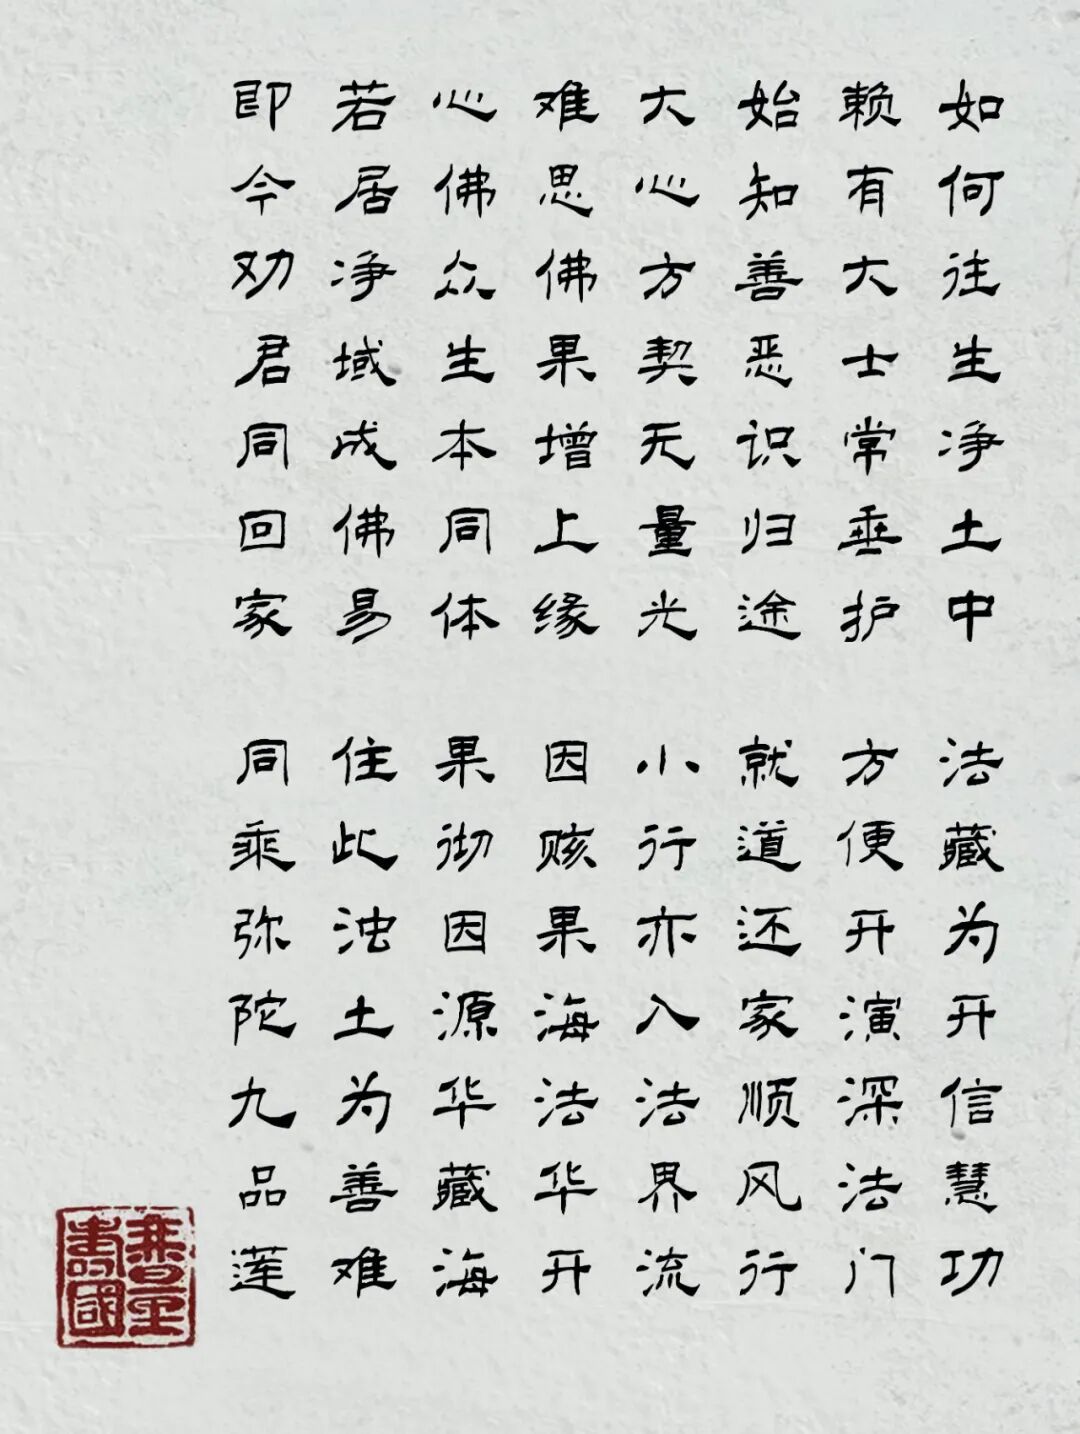 如何往生净土中
法藏为开信慧功
赖有大士常垂护
方便开演深法门
始知善恶识归途
就道还家顺风行
大心方契无量光
小行亦入法界流
难思佛果增上缘
因赅果海法华开
心佛众生本同体
果彻因源华藏海
若居净域成佛易
住此浊土为善难
即今劝君同回家
同乘弥陀九品莲
無量
壽國